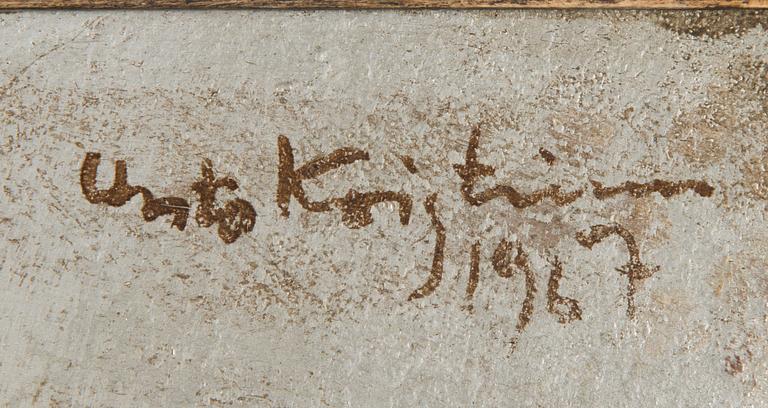 Unto Koistinen
1967